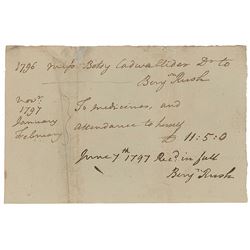 1796 Miss Betsy Cadwallider Dr to
Benjn Rush
Novr.
1797
January
February
To medicines, and
attendance to herself
£ 11:5:0
June 7th 1797 Recd. in full
Benjn Rush